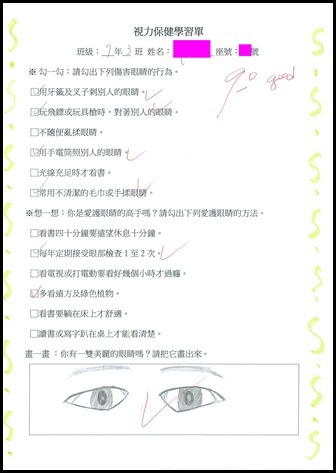 視力保健學習單
班級：2年3班 姓名： 座號： 號
※ 勾一勾：請勾出下列傷害眼睛的行為。
☑用牙籤及叉子刺別人的眼睛。
☑玩飛鏢或玩具槍時，對著別人的眼睛。
□不隨便亂揉眼睛。
☑用手電筒照別人的眼睛。
□光線充足時才看書。
☑常用不清潔的毛巾或手揉眼睛。
※想一想：你是愛護眼睛的高手嗎？請勾出下列愛護眼睛的方法。
□看書四十分鐘要遠望休息十分鐘。
☑每年定期接受眼部檢查 1 至 2 次。
□看電視或打電動要看好幾個小時才過癮。
☑多看遠方及綠色植物。
□看書要躺在床上才舒適。
□讀書或寫字趴在桌上才能看清楚。
畫一畫：你有一雙美麗的眼睛嗎？請把它畫出來。
90 good